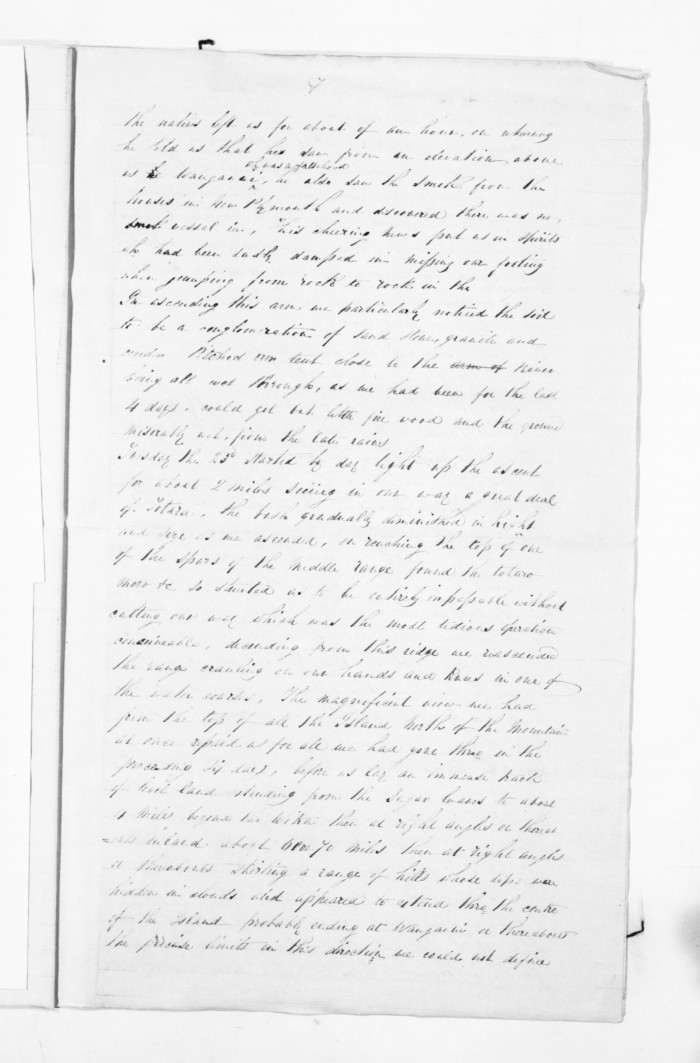 7
the natives left us for about of an hour, on returning
he told us that he saw from an elevation above
us Wanganui, he also saw the smoke from the
houses in New Plymouth and discovered there was no
vessel in, This cheering news put us in spirits
wh had been sadly damped in missing our footing
when jumping from rock to rock in the
In ascending this arm we particularly noticed the soil
to be a conglomeration of sand stone, granite and
cinder Pitched our tent close to the arm of River
being all wet through, as we had been for the last
4 days, could get but little fire wood and the ground
miserably wet, from the late rains
Tuesday the 23d Started by day light up the ascent
for about 2 miles seeing in our way a great deal
of Totara, the bush gradually diminished in hight
and size as we ascended, on reaching the top of one
of the spurs of the middle range found the totara
moro &c so stunted as to be entirely impassable without
cutting our way which was the most tedious operation
conceiveable, decending from this ridge we reascended
the range crawling on our hands and knees in one of
the water courses, The magnificent view we had
from the top of all the Island North of the Mountain
at once repaid us for all we had gone thro in the
preceeding six days, before us lay an immense track
of level land extending from the Sugar Loaves to about
miles beyond then at right angles or there
=outs inland about 60 or 70 miles then at right angles
or thereabouts skirting a range of hills whose tops were
hidden in clouds and appeared to extend thro the centre
of the Island probably ending at Wanganui or thereabouts
the precise limits in this direction we could not define